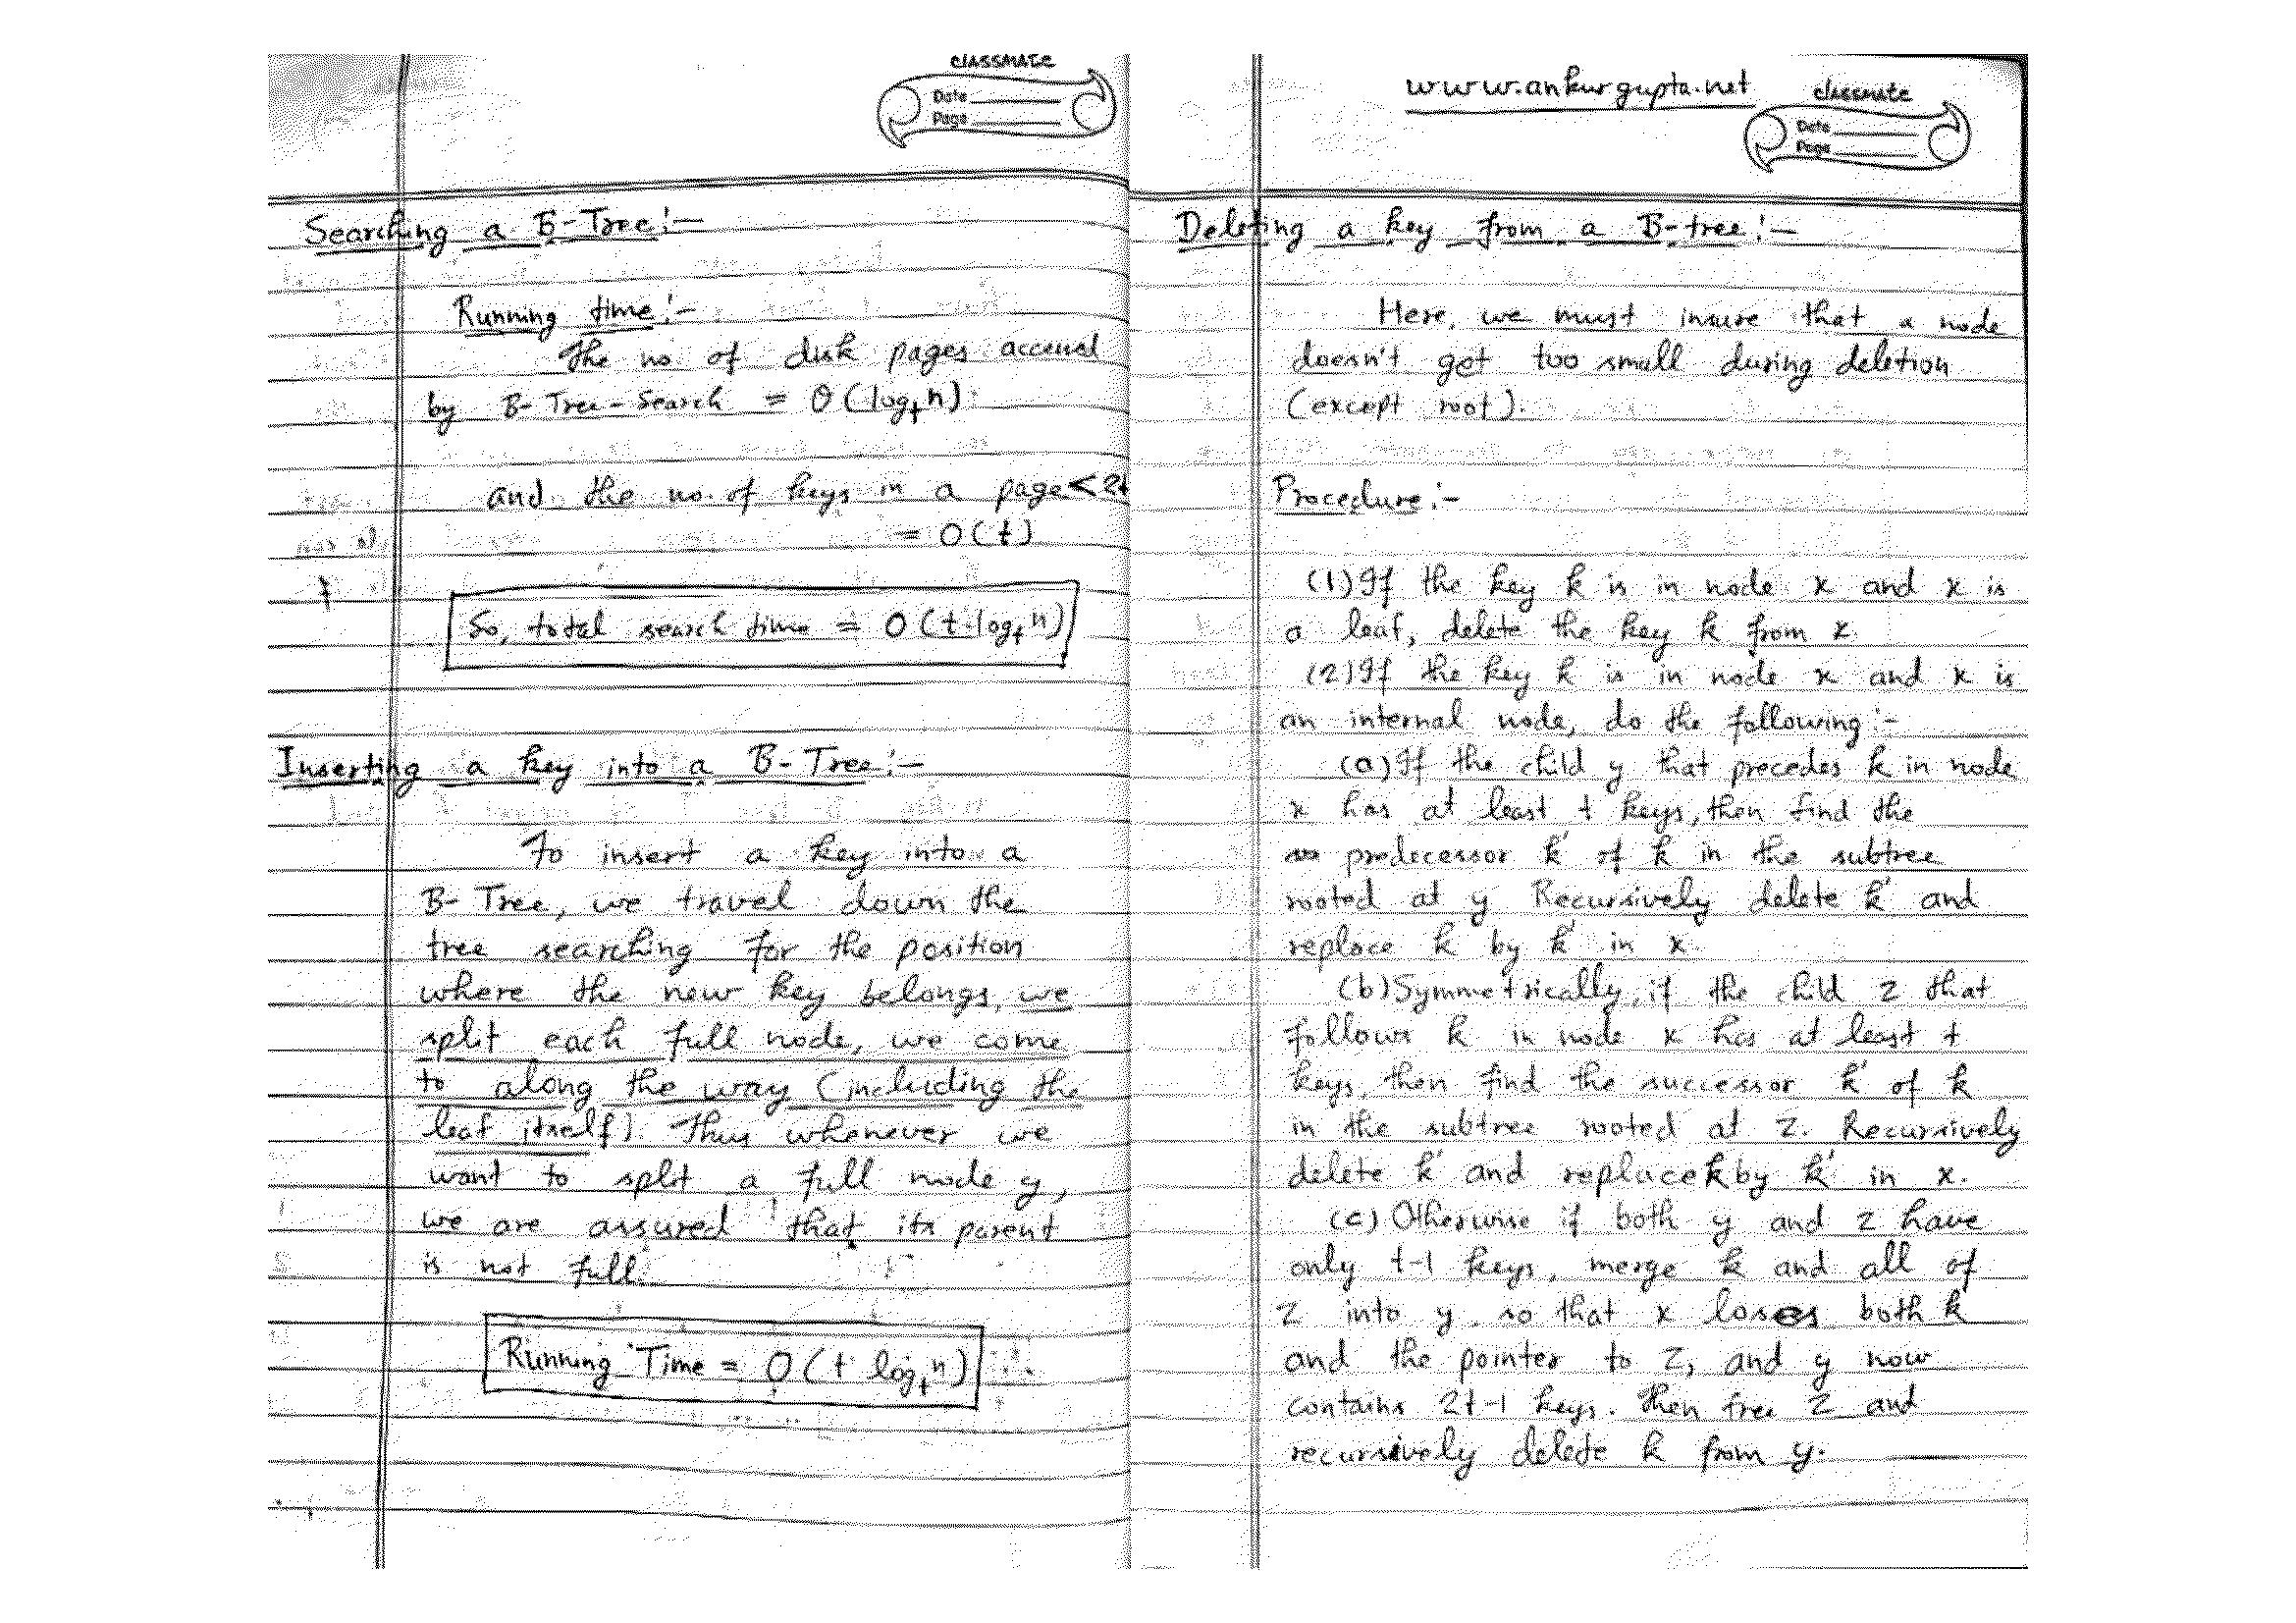 classmate
Date
Page
Searching a B-Tree:-
Running time:-
The no. of disk pages accessed
by B-Tree-Search = Θ(log_t n)
and the no. of keys in a page < 2t
= O(t)
So, total search time = O(t log_t n)
Inserting a key into a B-Tree:-
To insert a key into a
B-Tree, we travel down the
tree searching for the position
where the new key belongs, we
split each full node, we come
to along the way (including the
leaf itself). Thus whenever we
want to split a full node y,
we are assured that its parent
is not full.
Running Time = O(t log_t n)
www.ankurgupta.net
classmate
Date
Page
Deleting a key from a B-tree:-
Here, we must insure that a node
doesn't get too small during deletion
(except root).
Procedure:-
(1) If the key k is in node x and x is
a leaf, delete the key k from x.
(2) If the key k is in node x and x is
an internal node, do the following:-
(a) If the child y that precedes k in node
x has at least t keys, then find the
predecessor k' of k in the subtree
rooted at y. Recursively delete k' and
replace k by k' in x.
(b) Symmetrically, if the child z that
follows k in node x has at least t
keys, then find the successor k' of k
in the subtree rooted at z. Recursively
delete k' and replace k by k' in x.
(c) Otherwise if both y and z have
only t-1 keys, merge k and all of
z into y, so that x loses both k
and the pointer to z, and y now
contains 2t-1 keys. Then free z and
recursively delete k from y.